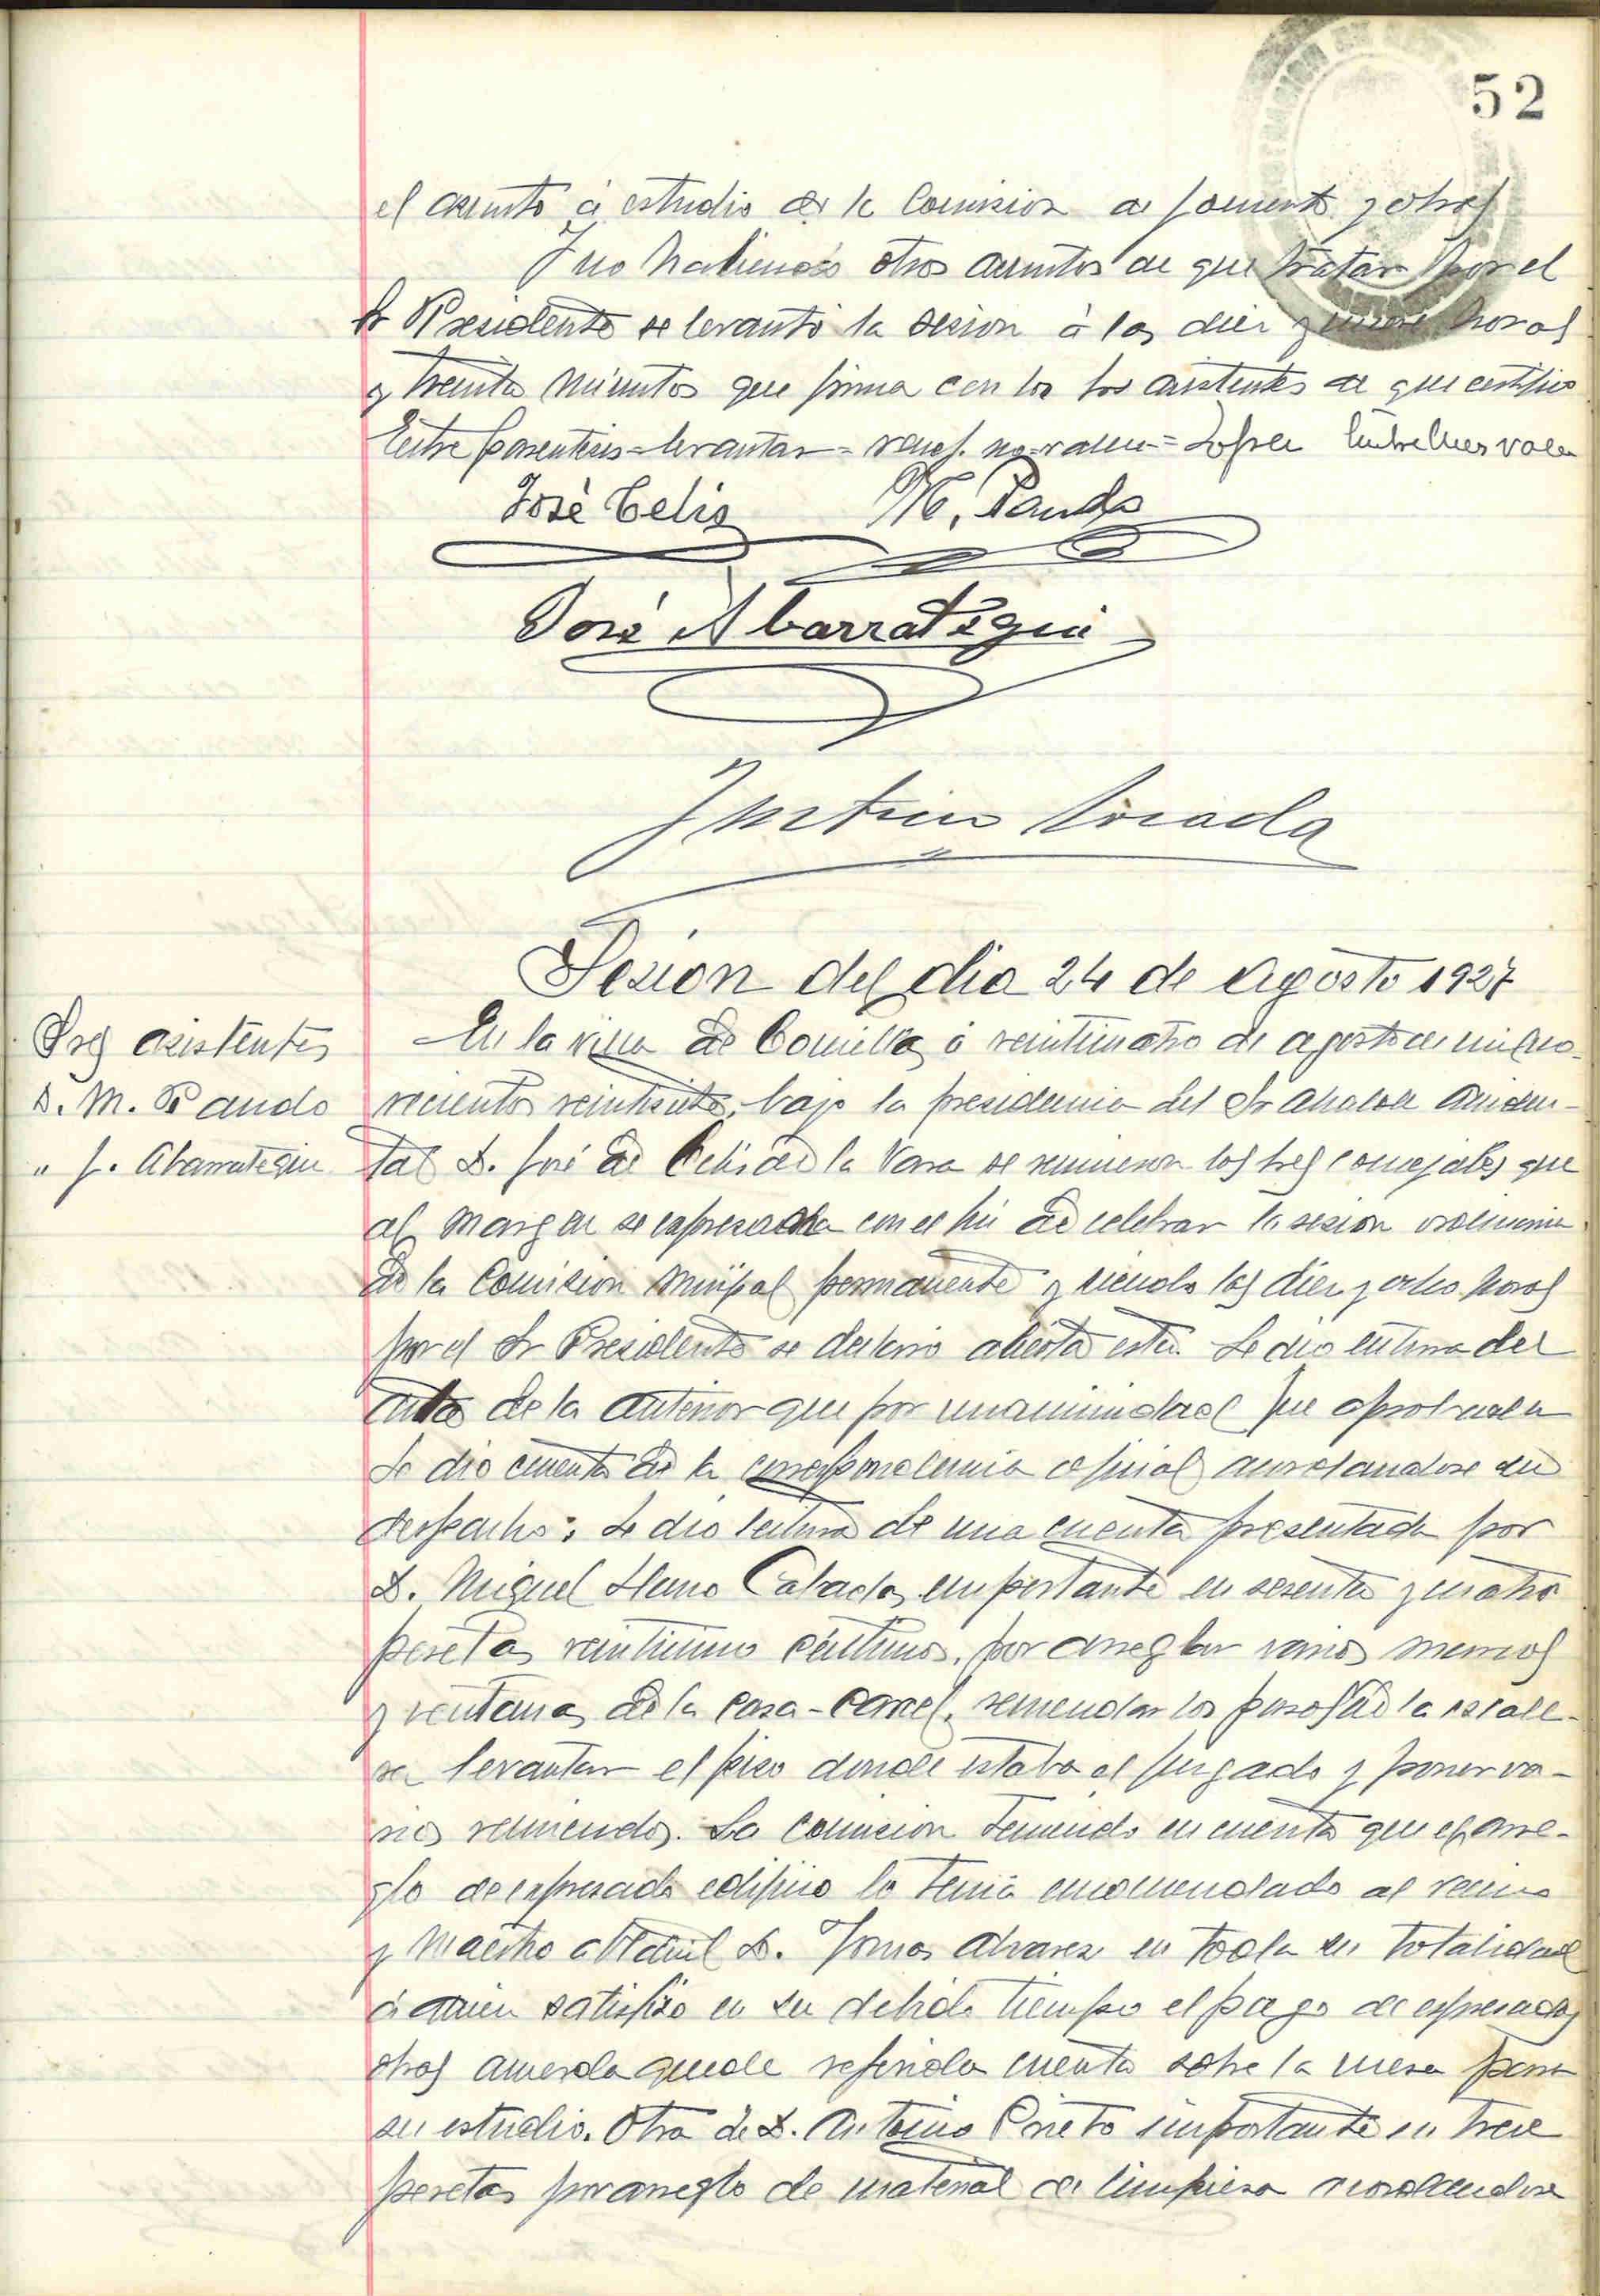 52
el asunto á estudio de la Comision de fomento y obras
Y no habiendo otros asuntos de que tratar por el
Sr Presidente se levantó la sesion á las diez y nueve horas
y treinta minutos que firma con los Sres asistentes de que certifico
Entre parentesis = levantar = no valen = Entrelineas valen
José Celis M. Pando
José Abarrategui
Sesion del dia 24 de Agosto 1927
Sres asistentes
D. M. Pando
" J. Abarrategui
En la villa de Comillas á veinticuatro de agosto de mil no-
vecientos veintisiete, bajo la presidencia del Sr Alcalde Acciden-
tal D. José de Celis de la Vara se reunieron los Sres concejales que
al margen se expresa con el fin de celebrar la sesion ordinaria
de la Comision Munipal permanente y siendo las diez y ocho horas
por el Sr Presidente se declaro abierta esta. Se dio lectura del
acta de la anterior que por unanimidad fue aprobada
Se dio cuenta de la correspondencia oficial acordandose su
despacho. Se dio lectura de una cuenta presentada por
D. Miguel Llano Calzada, importante en sesenta y cuatro
pesetas veinticinco céntimos, por arreglar varios marcos
y ventanas de la Casa-Carcel, remendar los pasos de la escale-
ra levantar el piso donde estaba el juzgado y poner va-
rios remiendos. La Comision teniendo en cuenta que el arre-
glo de expresado edificio lo tenia encomendado al vecino
y Maestro albañil D. Tomas Alvarez en toda su totalidad
á quien satisfizo en su debido tiempo el pago de expresadas
obras acuerda quede referida cuenta sobre la mesa para
su estudio. Otra de D. Antonio Prieto importante en trece
pesetas por arreglo de material de limpieza acordandose